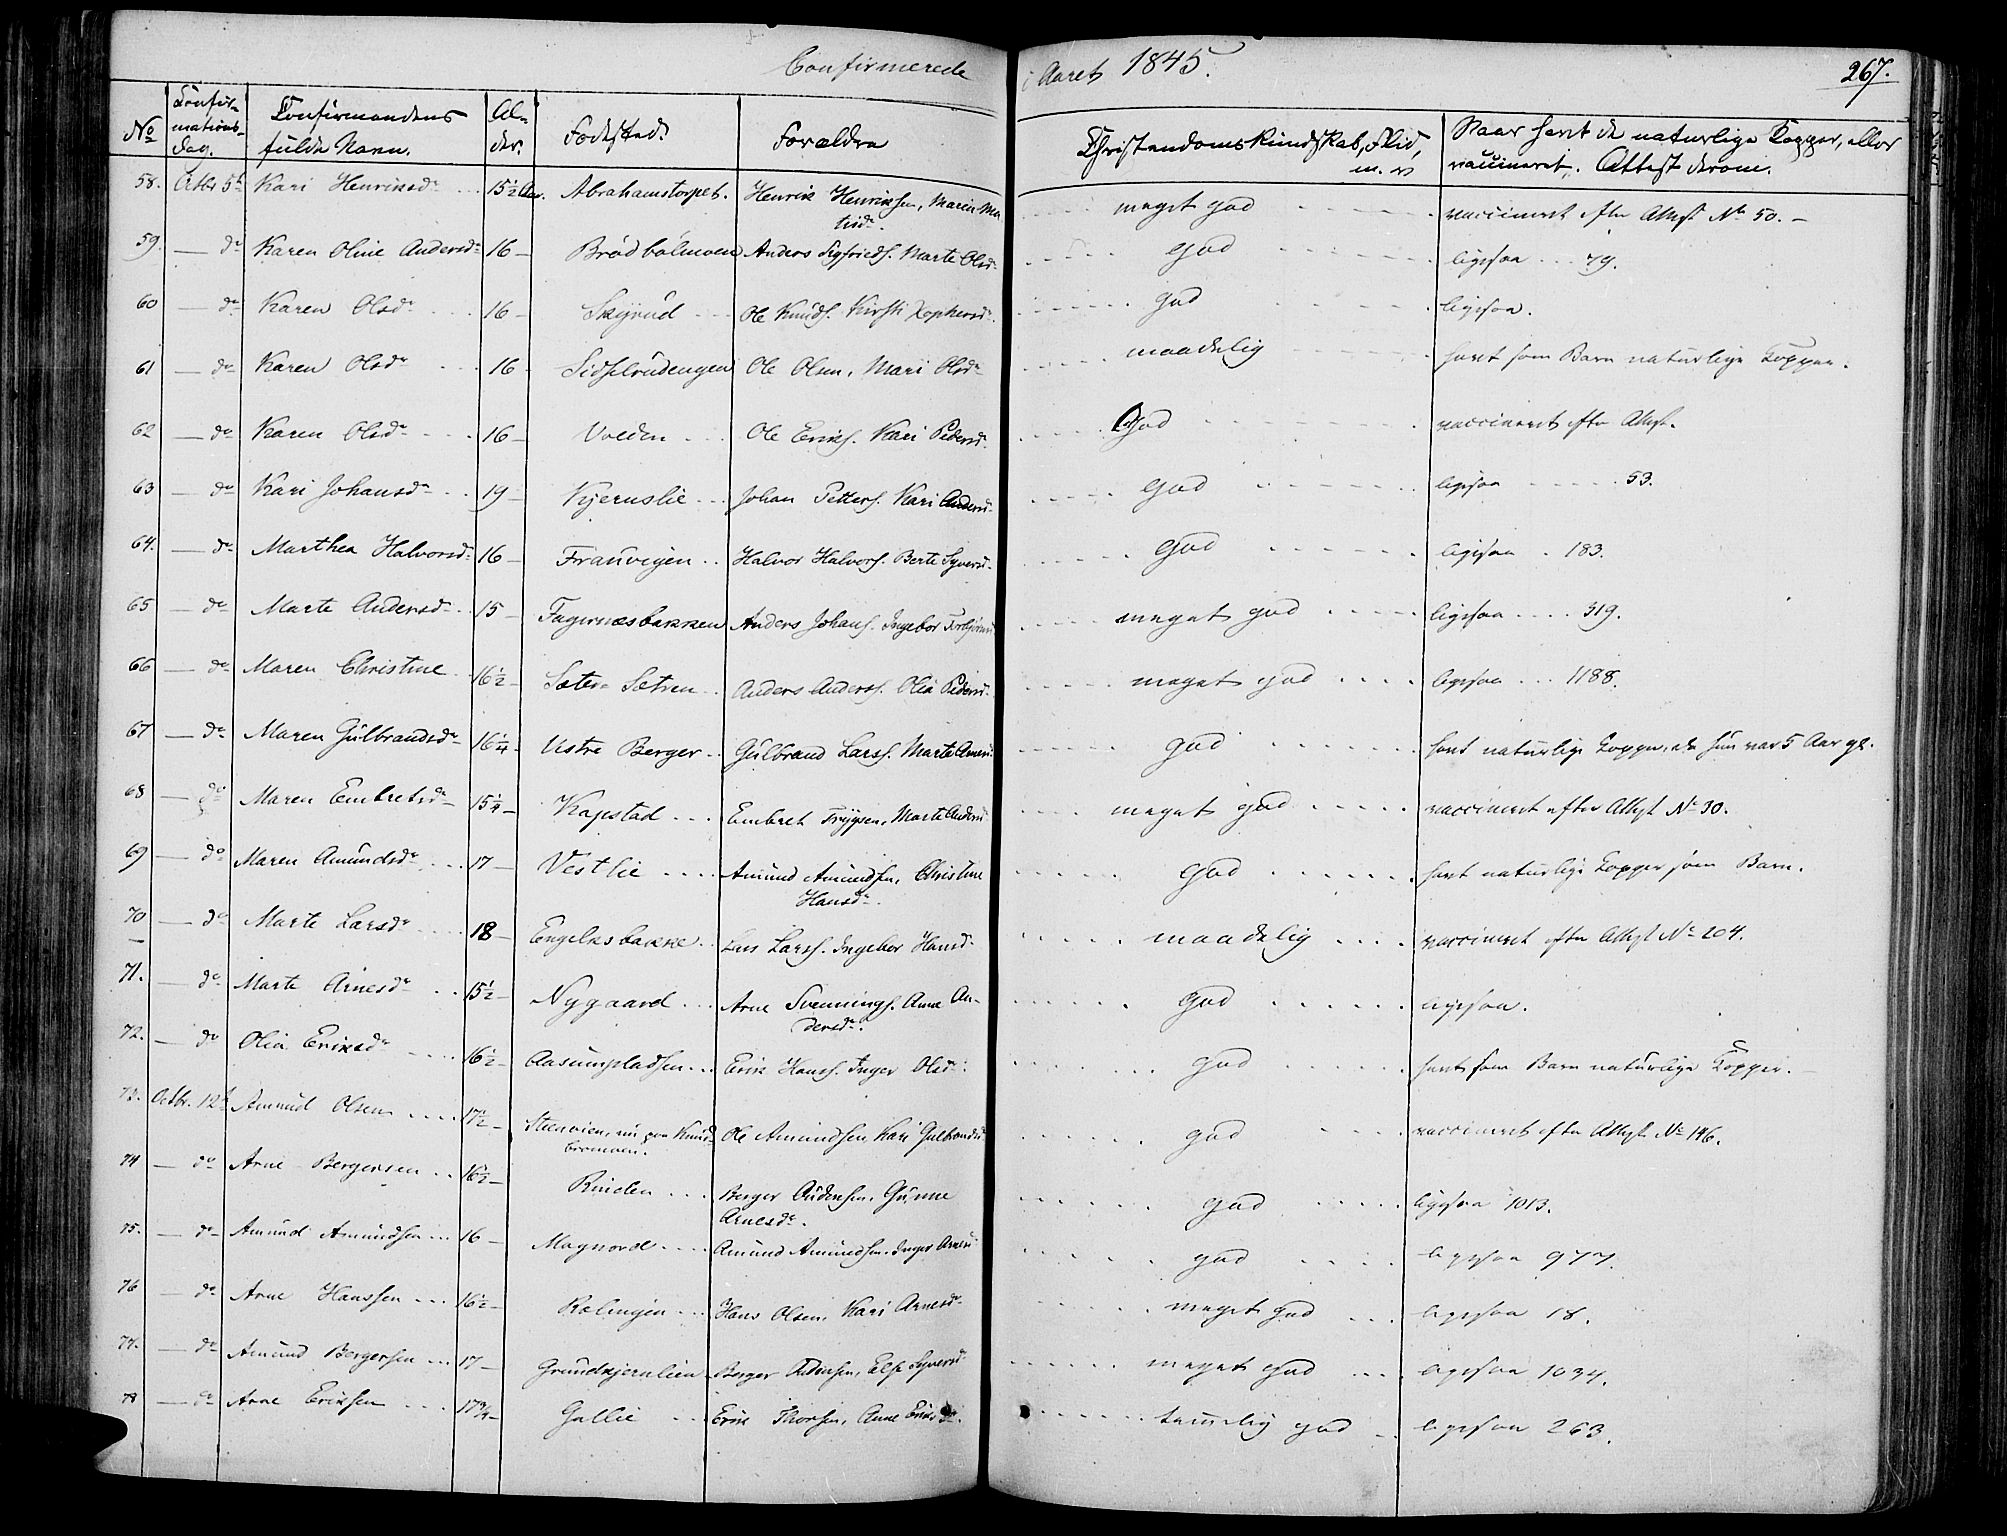 Confirmerede i Aaret 1845. 267.
No Confirmations-Dag. Confirmandens fulde Navn. Alder. Fødested. Forældre Christendomskundskab, Flid, m. v Naar havt de naturlige Kopper, eller vaccineret. Attest derom.
58. Octbr 5te Kari Henriksdr 15½ Aar. Abrahamstorpet. Henrik Henriksen, Maren Ma- meget god vaccineret efter Attest No 50. –
59. — do Karen Oline Andersdr 16 – Brødbølmoen Anders Sigfrieds. Marte Olsdr god ligesaa 79.
60 — do Karen Olsdr 16 – Skyrud Ole Knuds. Kirsti god ligesaa.
61 — do Karen Olsdr 16 – Sidselrudengen Ole Olsen, Mari Olsdr maadelig havt som Barn naturlige Kopper.
62 — do Karen Olsdr 16 – Volden Ole Eriks. Kari Pedersdr God vaccineret efter Attest.
63 — do Kari Johansdr 19 – Kjernslie Johan Petters. Kari Andersd. god ligesaa 53.
64. — do Marthea Halvorsdr 16 – Frauvigen Halvor Halvors. Berte Syversd. god ligesaa 183.
65 — do Marte Andersdr 15 – Fagernæsbakken Anders Johans. Ingebor Torbjørnsd meget god ligesaa 319.
66 — do Maren Christine 16½ – Sæter Sætren Anders Anderss. Olia Pedersd. meget god ligesaa 1188.
67 — do Maren Gulbrandsdr 16¼ – Vestre Berger Gulbrand Larss. Marte Arnesd. god havt naturlige Kopper, da hun var 5 Aar gl.
68 — do Maren Embretsdr 15¼ – Kapstad Embret Trygsen, Marte Andersd meget god vaccineret efter Attest No 30.
69 — do Maren Amundsdr 17 – Vestlie Amund Amundsen, Christine god havt naturlige Kopper som Barn.
Hansdr.
70 — do Marte Larsdr 18 – Engelsbakke Lars Larss. Ingebor Hansd. maadelig vaccineret efter Attest No 204.
71. — do Marte Arnesdr 15½ – Nygaard Arne Svennings. Anne An- god ligesaa.
dersdr.
72. — do Olia Eriksdr 16½ – Aasumpladsen Erik Hanss. Inger Olsd. god havt som Barn naturlige Kopper. –
73. Octbr. 12te Amund Olsen 17½ – Steenvien, nu paa Knud- Ole Amundsen, Kari Gulbrandsd god vaccineret efter Attest No 146.
74 — do Arne Bergersen 16½ – Rinden Berger Andersen, Gunne god ligesaa 1013.
Arnesdr.
75. — do Amund Amundsen 16 – Magnord Amund Amundsen, Inger Arnesd god ligesaa 977.
76 — do Arne Hanssen 16½ – Rølingen Hans Olsen, Kari Arnesdr meget god ligesaa 18.
77. — do Amund Bergersen 17 – Grundkjernlien Berger Else Syversd meget god ligesaa 1034.
78 — do Arne Eriksen 17¾ – Gallie Erik Thorsen, Anne Eriksdr. temmelig god ligesaa 263.